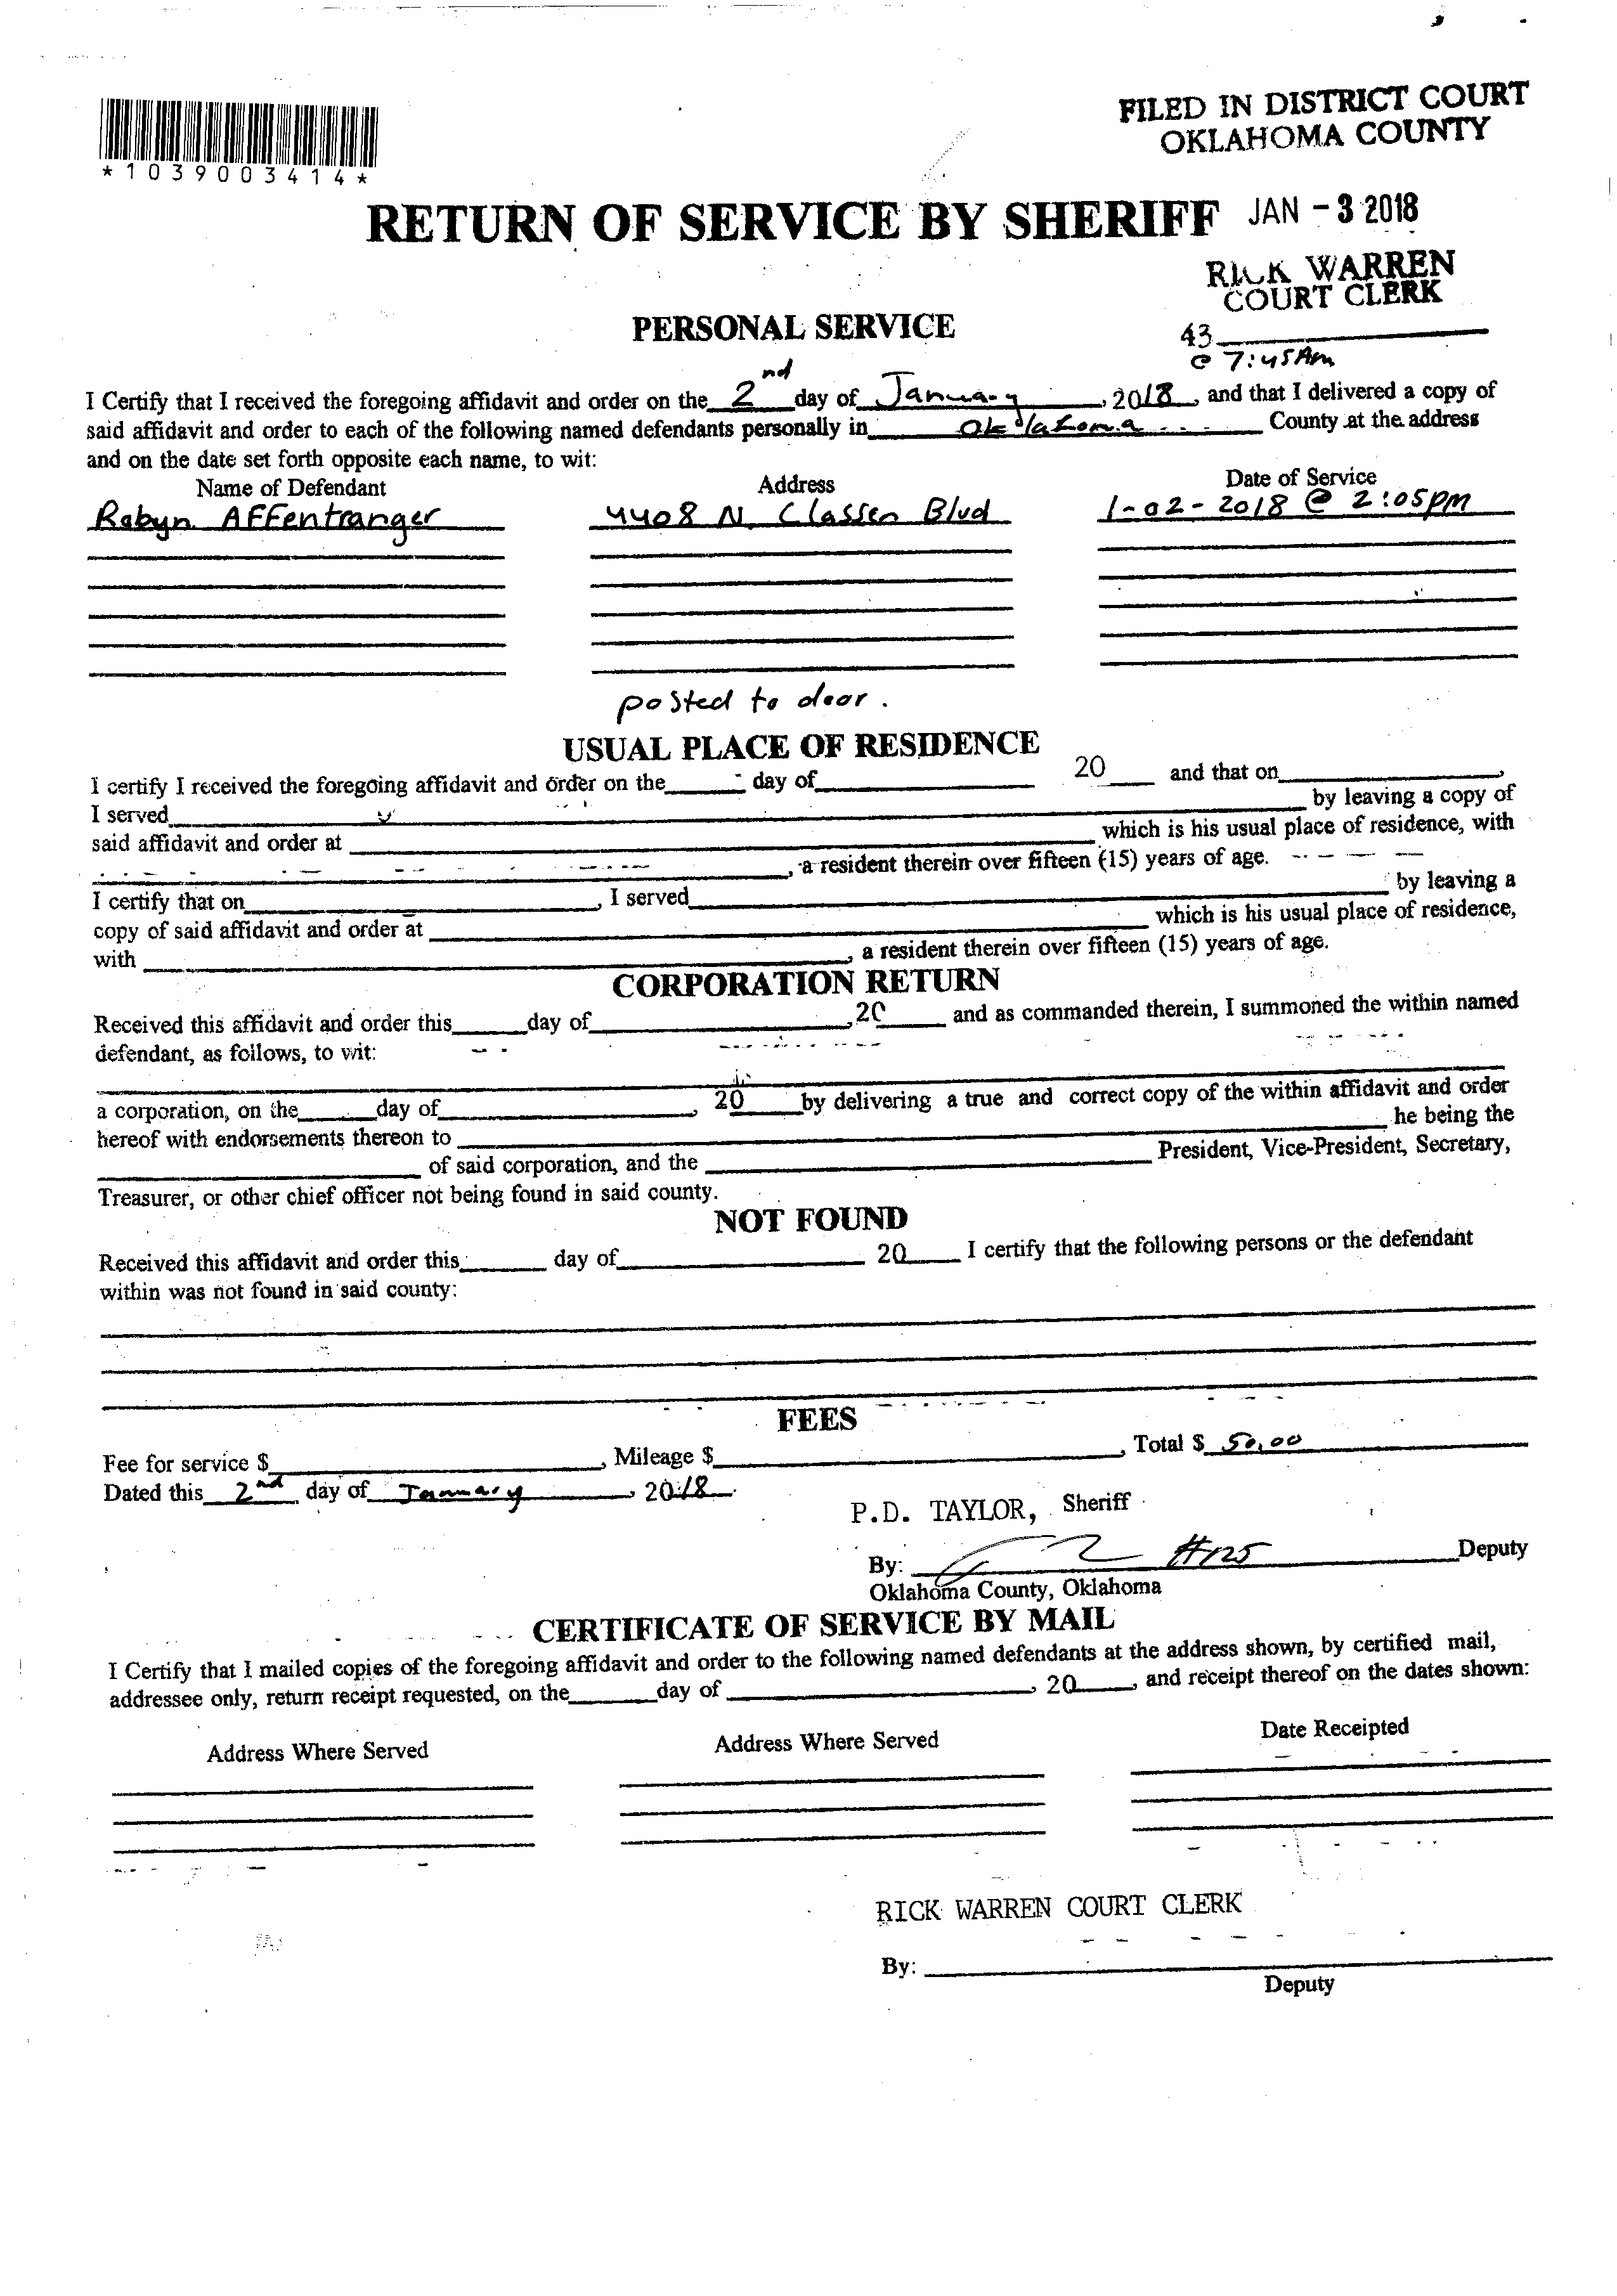 FILED IN DISTRICT COURT
OKLAHOMA COUNTY
*1039003414*
RETURN OF SERVICE BY SHERIFF JAN - 3 2018
RICK WARREN
COURT CLERK
PERSONAL SERVICE
43
@ 7:45 Am
I Certify that I received the foregoing affidavit and order on the 2nd day of January, 2018, and that I delivered a copy of
said affidavit and order to each of the following named defendants personally in Oklahoma County at the address
and on the date set forth opposite each name, to wit:
Name of Defendant Address Date of Service
Robyn AFFentranger 4408 N. Classen Blvd 1-02-2018 @ 2:05pm
posted to door.
USUAL PLACE OF RESIDENCE
I certify I received the foregoing affidavit and order on the day of 20 and that on ,
I served by leaving a copy of
said affidavit and order at which is his usual place of residence, with
, a resident therein over fifteen (15) years of age.
I certify that on , I served by leaving a
copy of said affidavit and order at which is his usual place of residence,
with , a resident therein over fifteen (15) years of age.
CORPORATION RETURN
Received this affidavit and order this day of , 20 and as commanded therein, I summoned the within named
defendant, as follows, to wit:
a corporation, on the day of , 20 by delivering a true and correct copy of the within affidavit and order
hereof with endorsements thereon to he being the
of said corporation, and the President, Vice-President, Secretary,
Treasurer, or other chief officer not being found in said county.
NOT FOUND
Received this affidavit and order this day of 20 I certify that the following persons or the defendant
within was not found in said county:
FEES
Fee for service $ , Mileage $ , Total $ 50.00
Dated this 2nd day of January, 2018.
P.D. TAYLOR, Sheriff
By: #125 Deputy
Oklahoma County, Oklahoma
CERTIFICATE OF SERVICE BY MAIL
I Certify that I mailed copies of the foregoing affidavit and order to the following named defendants at the address shown, by certified mail,
addressee only, return receipt requested, on the day of , 20 , and receipt thereof on the dates shown:
Address Where Served Address Where Served Date Receipted
RICK WARREN COURT CLERK
By:
Deputy